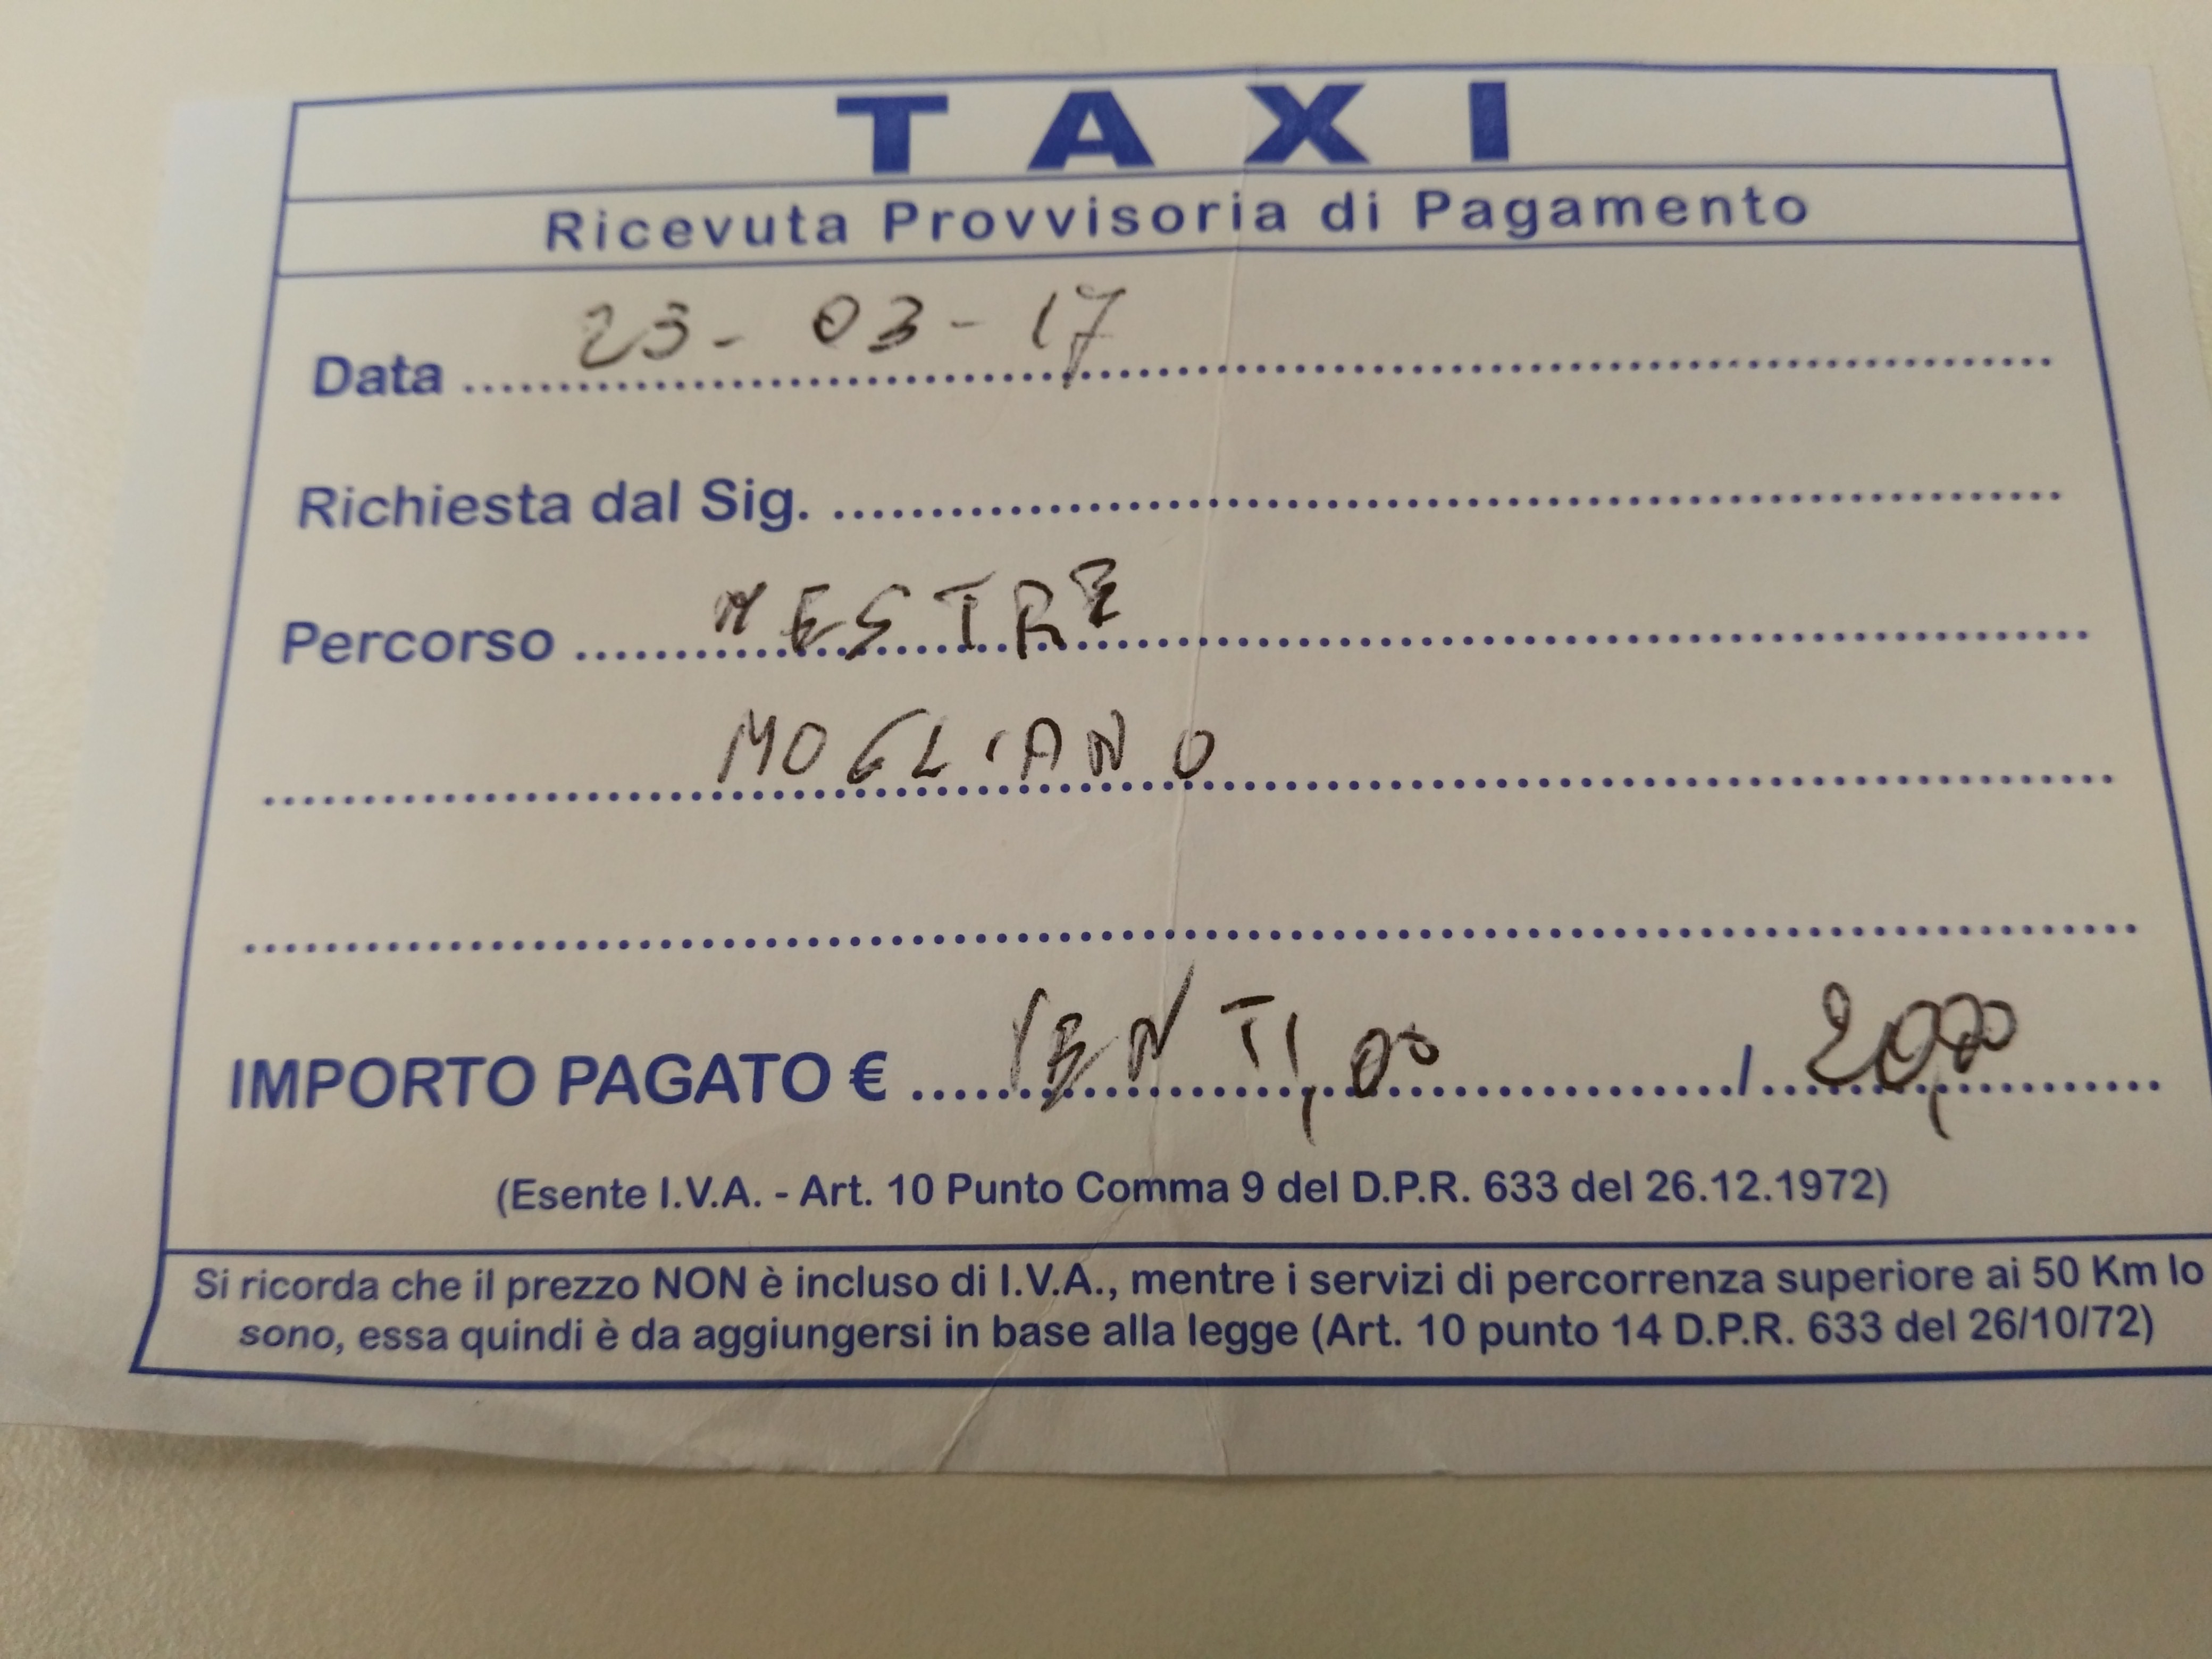 TAXI
Ricevuta Provvisoria di Pagamento
Data ........ 23-03-17 ........
Richiesta dal Sig. ................
Percorso ........ MESTRE ........
MOGLIANO
IMPORTO PAGATO € ........ VENTI,00 ........ / ........ 20,00 ........
(Esente I.V.A. - Art. 10 Punto Comma 9 del D.P.R. 633 del 26.12.1972)
Si ricorda che il prezzo NON è incluso di I.V.A., mentre i servizi di percorrenza superiore ai 50 Km lo
sono, essa quindi è da aggiungersi in base alla legge (Art. 10 punto 14 D.P.R. 633 del 26/10/72)